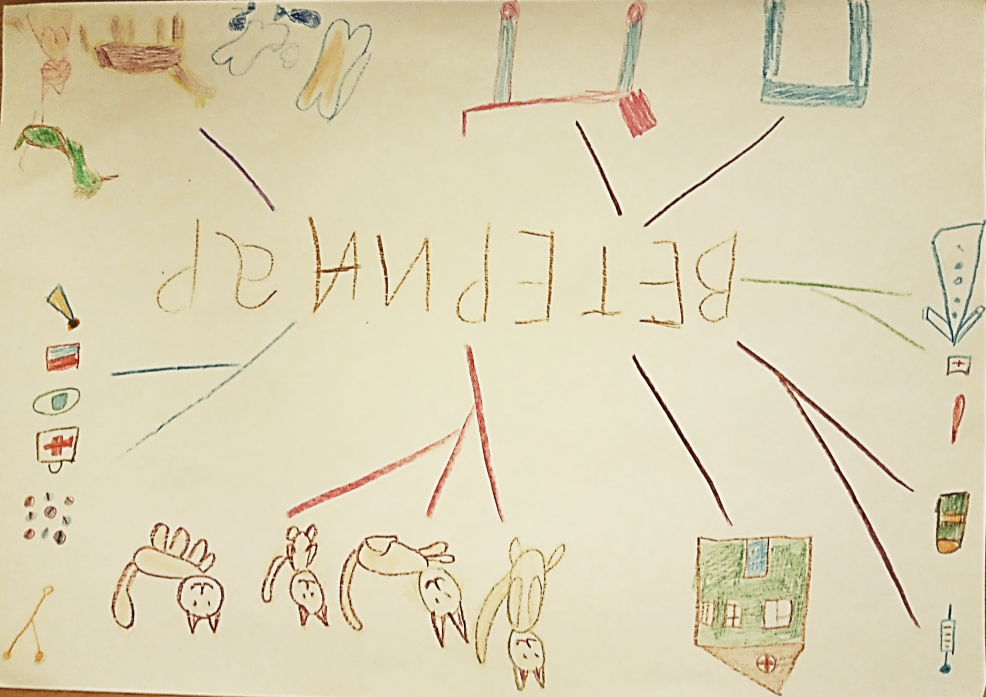 ВЕТЕРИНАР